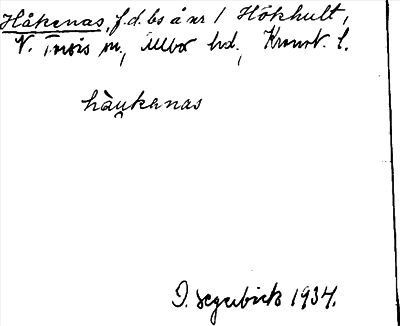 Håkenas, f.d. bs å nr 1 Hökhult,
V. Torsås sn, Allbo hd, Kronob. l.
hàukenas
I. Segerbäck 1934.